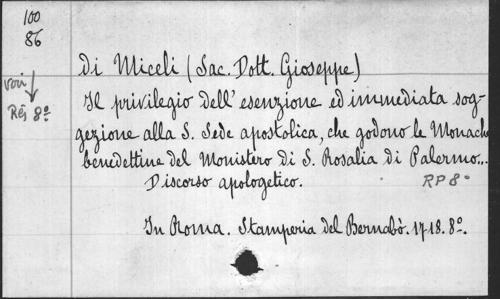 100
86
di Miceli (Sac. Dott. Gioseppe)
Il privilegio dell' esenzione ed immediata sog-
gezione alla S. Sede apostolica, che godono le Monache
benedettine del Monistero di S. Rosalia di Palermo...
Discorso apologetico.
RP 8º
In Roma. Stamperia del Bernabò. 1718. 8º.
8º